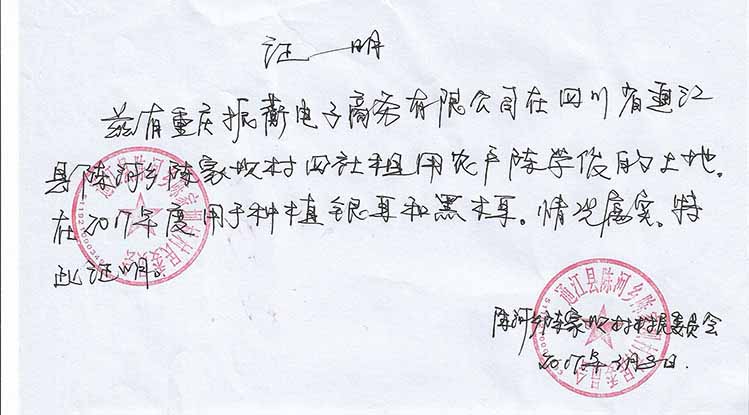 证明
兹有重庆振衡电子商务有限公司在四川省通江
县陈河乡陈家坝村四社租用农户陈学俊的土地。
在2017年度用于种植银耳和黑木耳。情况属实。特
此证明。
通江县陈河乡陈家坝村村民委员会
陈河乡陈家坝村村民委员会
2017年3月 日.